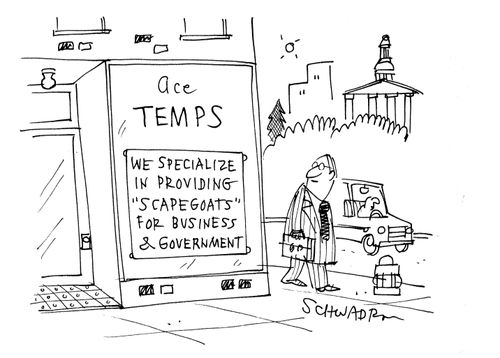 ace
TEMPS
WE SPECIALIZE
IN PROVIDING
"SCAPEGOATS"
FOR BUSINESS
& GOVERNMENT
SCHWADRON